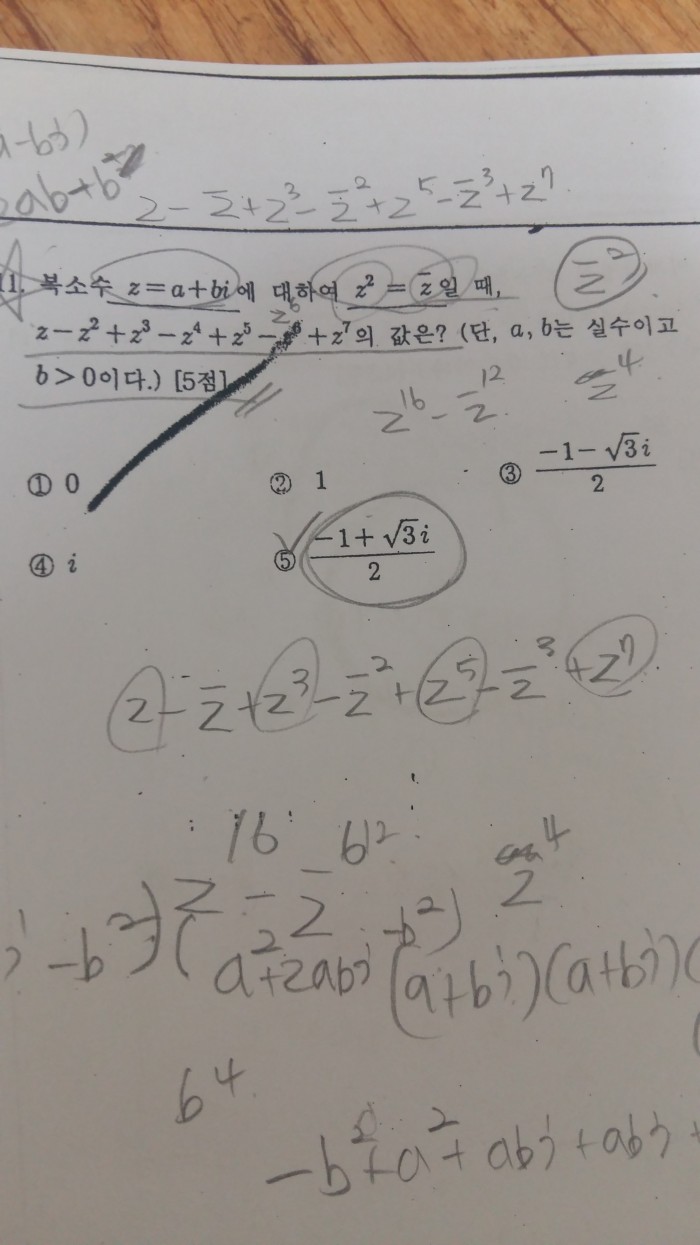 a-bi)
2ab+b²
z - z̄ + z³ - z̄² + z⁵ - z̄³ + z⁷
11. 복소수 z=a+bi에 대하여 z² = z̄일 때, z̄²
z⁶
z-z²+z³-z⁴+z⁵-z⁶+z⁷의 값은? (단, a, b는 실수이고
b>0이다.) [5점]
z¹⁶ - z̄¹² z̄⁴
① 0 ② 1 ③ (-1-√3i)/2
④ i ⑤ (-1+√3i)/2
z - z̄ + z³ - z̄² + z⁵ - z̄³ + z⁷
16 6²
z - z̄ z⁴
i -b²)(a²+2abi -b²) (a+bi)(a+bi)(
b⁴
-b²+a²+abi+abi+